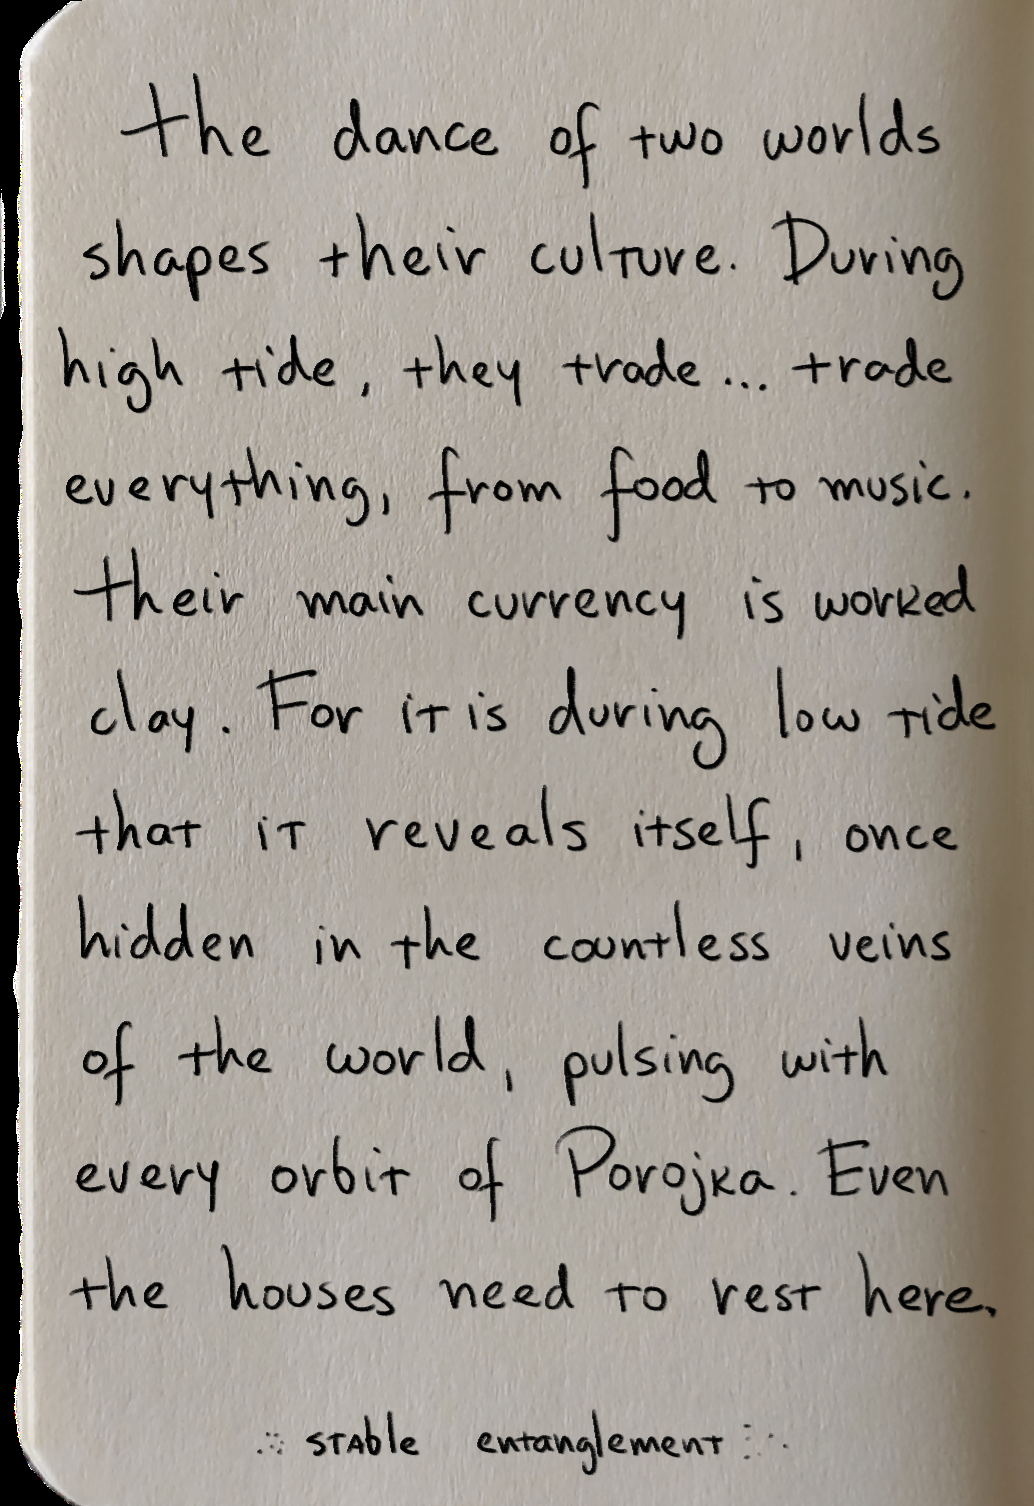 The dance of two worlds
shapes their culture. During
high tide, they trade... trade
everything, from food to music.
Their main currency is worked
clay. For it is during low tide
that it reveals itself, once
hidden in the countless veins
of the world, pulsing with
every orbit of Porojka. Even
the houses need to rest here.
stable entanglement